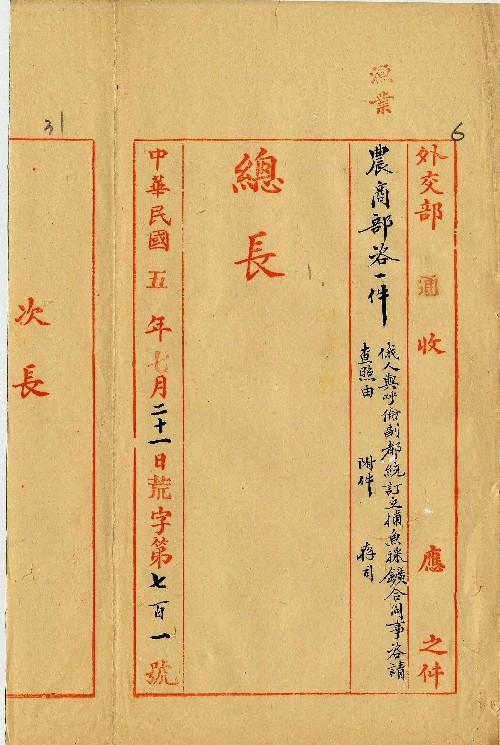 漁業
6
外交部 通 收 應 之件
農商部咨一件 俄人與呼倫副都統訂立捕魚採鑛合同事咨請
查照由 附件 存司
總長
中華民國五年七月二十一日荒字第七百一號
31
次長